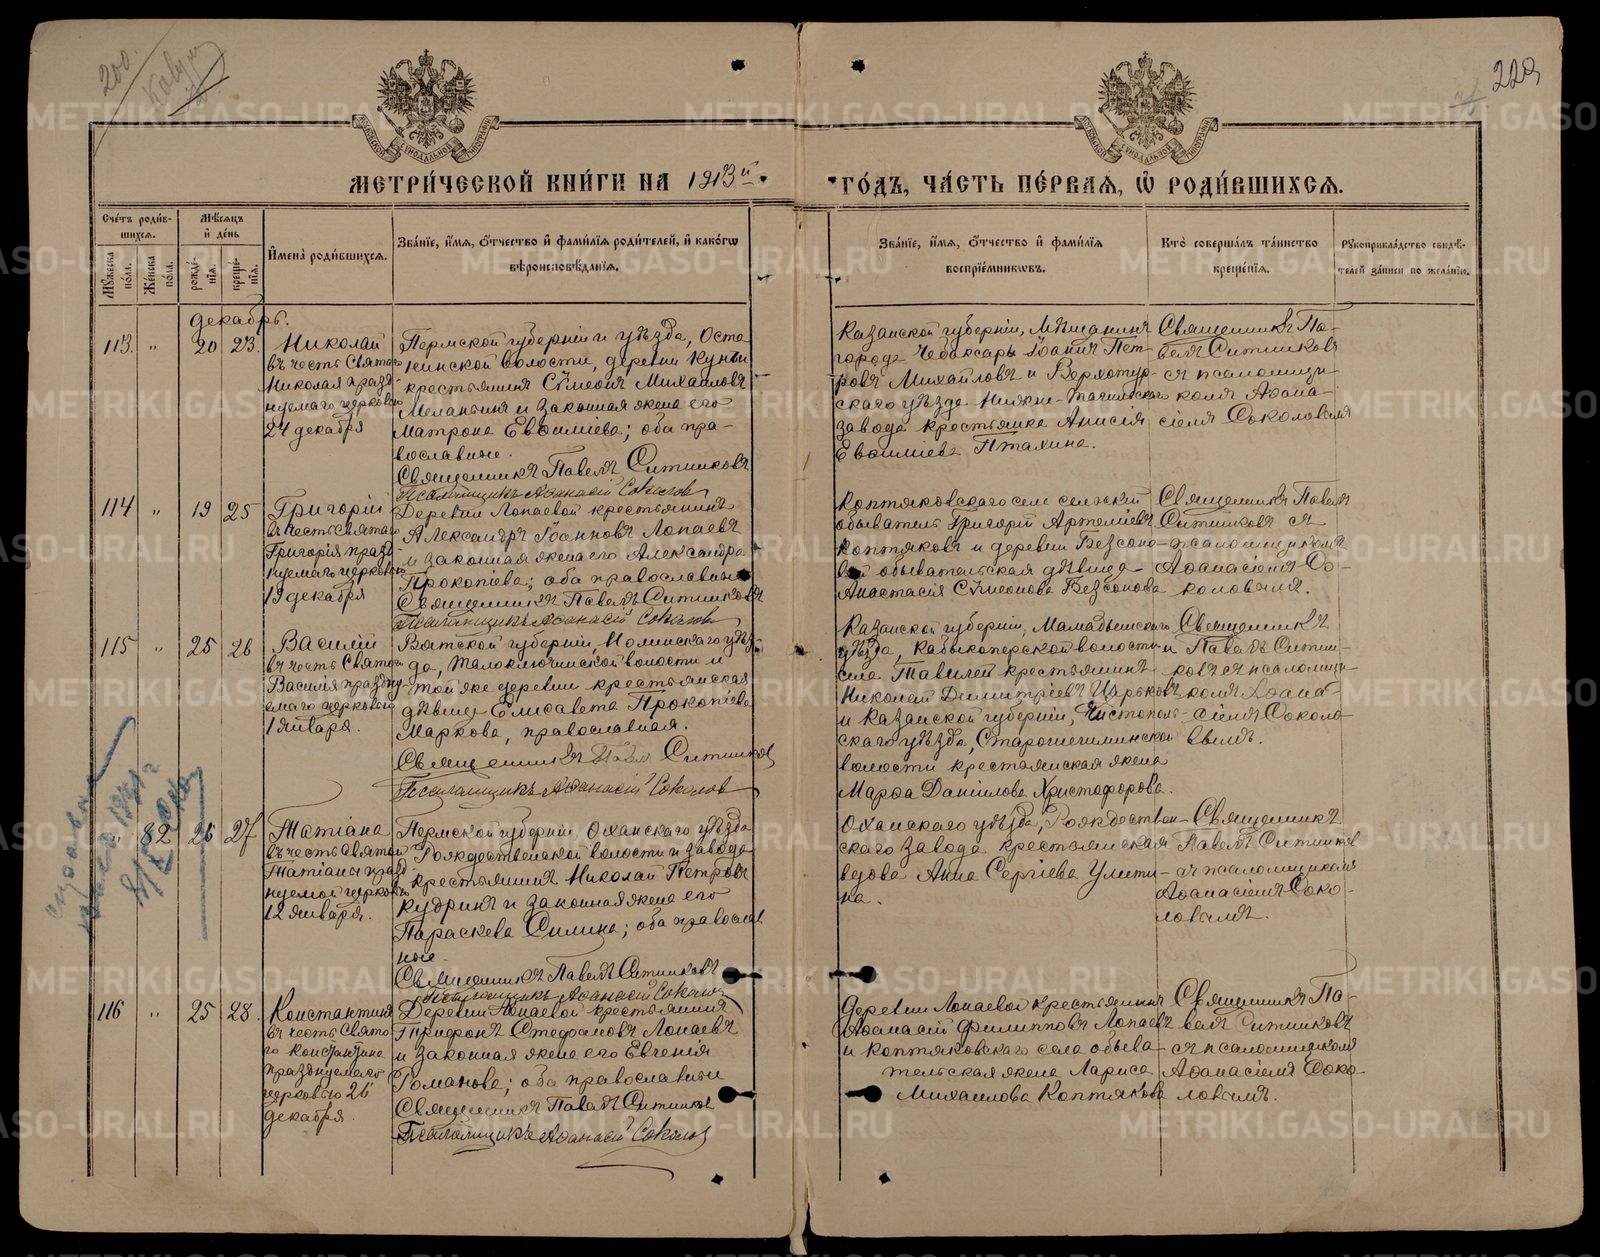 200.
229
МЕТРИ́ЧЕСКОЙ КНИ́ГИ НА 1913й
ГО́ДЪ, ЧА́СТЬ ПЕ́РВАѦ, Ѡ РОДИ́ВШИХСѦ.
Сче́тъ роди́в-
шихсѧ.
Мꙋ́жеска по́ла.
Же́нска по́ла.
Мѣ́сѧцъ
и҆ де́нь
рожде́-
нїѧ.
креще́-
нїѧ.
И҆мена̀ роди́вшихсѧ.
Зва́нїе, и҆́мѧ, ѻ҆́тчество и҆ фами́лїѧ роди́телей, и҆ како́гѡ
вѣроисповѣ́данїѧ.
Зва́нїе, и҆́мѧ, ѻ҆́тчество и҆ фами́лїѧ
воспрїе́мникѡвъ.
Кто̀ соверша́лъ та́инство
креще́нїѧ.
Рꙋкоприкла́дство свидѣ́-
телей за́писи по жела́нїю.
декабрь.
113. " 20 23.
Николай
въ честь Святаго
Николая празд-
нуемаго церковью
24 декабря
Пермской губернiи и уѣзда, Оста-
нинской волости, деревни Куньи
крестьянинъ Сѵмеонъ Михаиловъ
Меланьинъ и законная жена его
Матрона Евѳимiева; оба пра-
вославные.
Священникъ Павелъ Ситниковъ
Псаломщикъ Аѳанасiй Соколов
Казанской губернiи, Мѣщанинъ
города Чебоксаръ Iоаннъ Пет-
ровъ Михайловъ и Верхотур-
скаго уѣзда Нижне-Тагильскаго
завода крестьянка Анисiя
Евѳимiева Птахина.
Священникъ Па-
велъ Ситниковъ
съ псаломщи-
комъ Аѳана-
сiемъ Соколовымъ
114 " 19 25
Григорiй
въ честь Святаго
Григорiя празд-
нуемаго церковью
19 декабря
Деревни Лопаевой крестьянинъ
Александръ Iоанновъ Лопаевъ
и законная жена его Александра
Прокопiева; оба православные
Священникъ Павелъ Ситниковъ
Псаломщикъ Аѳанасiй Соколов
Коптяковскаго села сельскiй
обыватель Григорiй Артемiевъ
Коптяковъ и деревни Безсоно-
вой обывательская дѣвица
Анастасiя Сѵмеонова Безсонова
Священникъ Павелъ
Ситниковъ съ
псаломщикомъ
Аѳанасiемъ Со-
коловымъ.
115 " 25 26
Василiй
въ честь Святаго
Василiя праздну-
емаго церковью
1 января.
Вятской губернiи, Нолинскаго уѣз-
да, Талоключинской волости и
той же деревни крестьянская
дѣвица Елисавета Прокопiева
Маркова, православная.
Священникъ Павелъ Ситников
Псаломщикъ Аѳанасiй Соколов
Казанской губернiи, Мамадышскаго
уѣзда, Кабыкоперской волости и
села Тавилей крестьянинъ
Николай Димитрiевъ Царьковъ
и Казанской губернiи, Чистополь-
скаго уѣзда, Старошешминской
волости крестьянская жена
Марѳа Данiилова Христофорова.
Священникъ
Павелъ Ситни-
ковъ съ псаломщи-
комъ Аѳана-
сiемъ Соколо-
вымъ.
" 82 25 27
Татiана
въ честь Святой
Татiаны празд-
нуемой церковью
12 января.
Пермской губернiи, Оханскаго уѣзда
Рождественской волости и завода
крестьянинъ Николай Петровъ
Кудринъ и законная жена его
Параскева Силина; оба православ-
ные.
Священникъ Павелъ Ситниковъ
Псаломщикъ Аѳанасiй Соколов
Оханскаго уѣзда, Рождествен-
скаго завода крестьянская
вдова Анна Сергiева Улити-
на.
Священникъ
Павелъ Ситников
съ псаломщикомъ
Аѳанасiемъ Соко-
ловымъ.
116 " 25 28.
Константинъ
въ честь Свято-
го Константина
празднуемаго
церковью 26
декабря.
Деревни Лопаевой крестьянинъ
Трифонъ Стефановъ Лопаевъ
и законная жена его Евгенiя
Романова; оба православные
Священникъ Павелъ Ситников
Псаломщикъ Аѳанасiй Соколов
Деревни Лопаевой крестьянинъ
Аѳанасiй Филипповъ Лопаевъ
и Коптяковскаго села обыва-
тельская жена Лариса
Михаилова Коптякова
Священникъ Па-
велъ Ситниковъ
съ псаломщикомъ
Аѳанасiемъ Соко-
ловымъ.
METRIKI.GASO-URAL.RU